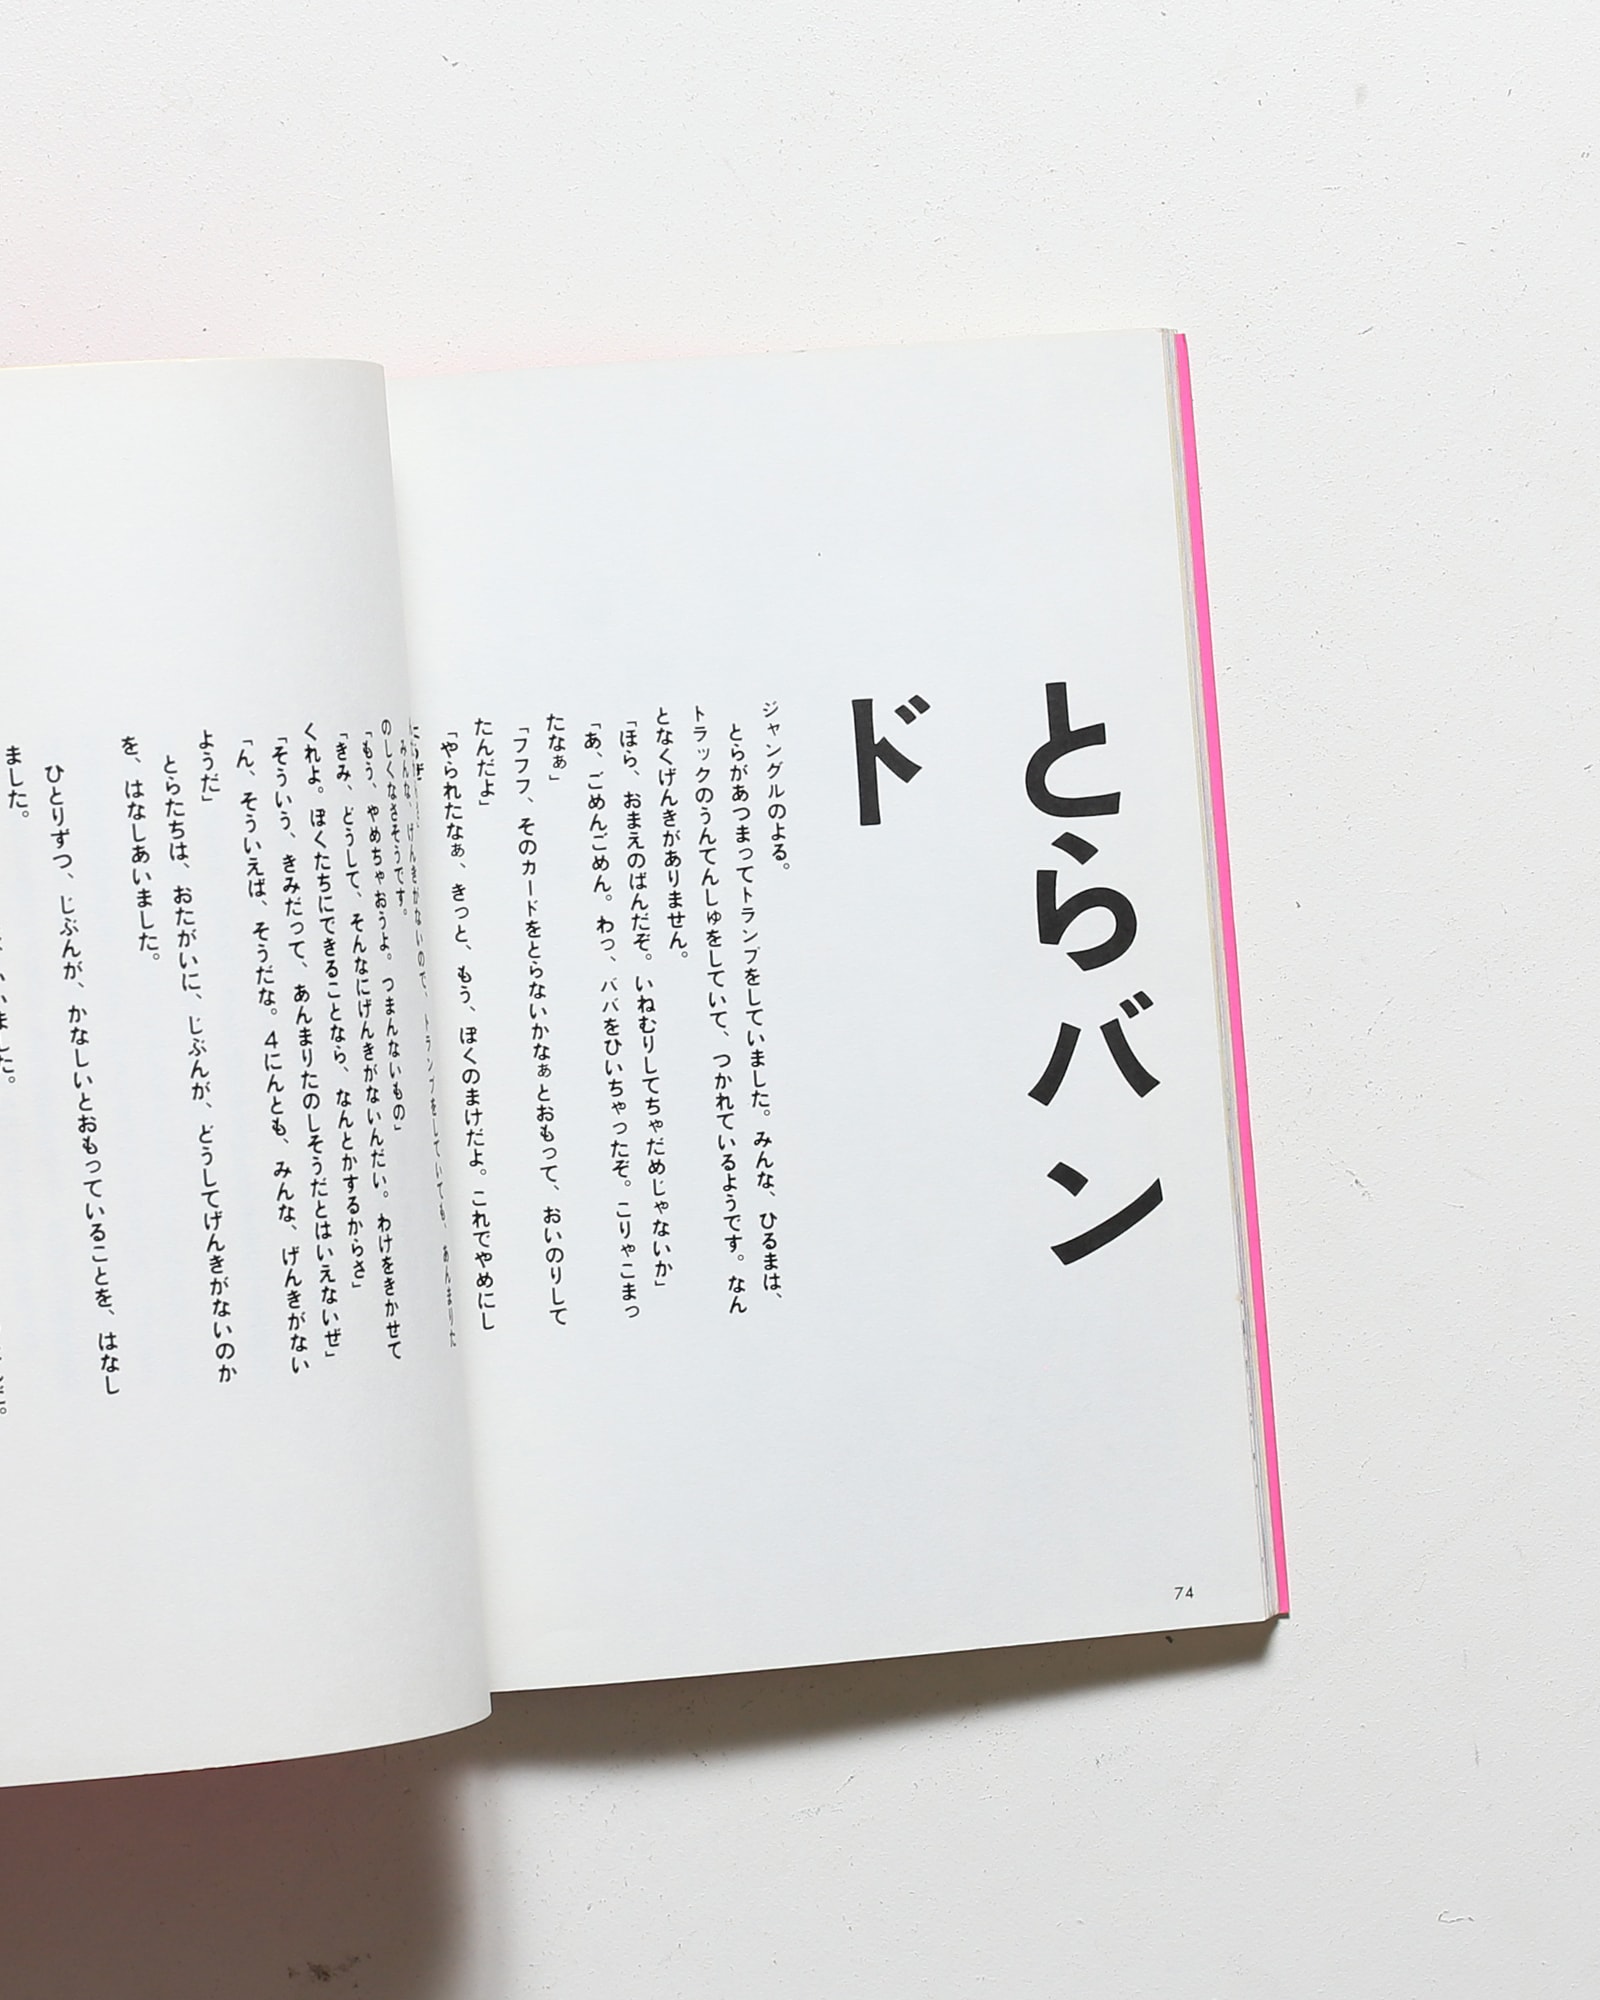 とらバン
ド
ジャングルのよる。
とらがあつまってトランプをしていました。みんな、ひるまは、
トラックのうんてんしゅをしていて、つかれているようです。なん
となくげんきがありません。
「ほら、おまえのばんだぞ。いねむりしてちゃだめじゃないか」
「あ、ごめんごめん。わっ、ババをひいちゃったぞ。こりゃこまっ
たなぁ」
「フフフ、そのカードをとらないかなぁとおもって、おいのりして
たんだよ」
「やられたなぁ、きっと、もう、ぼくのまけだよ。これでやめにし
みんな、げんきがないので、トランプをしていても、あんまりた
のしくなさそうです。
「もう、やめちゃおうよ。つまんないもの」
「きみ、どうして、そんなにげんきがないんだい。わけをきかせて
くれよ。ぼくたちにできることなら、なんとかするからさ」
「そういう、きみだって、あんまりたのしそうだとはいえないぜ」
「ん、そういえば、そうだな。4にんとも、みんな、げんきがない
ようだ」
とらたちは、おたがいに、じぶんが、どうしてげんきがないのか
を、はなしあいました。
ひとりずつ、じぶんが、かなしいとおもっていることを、はなし
ました。
74